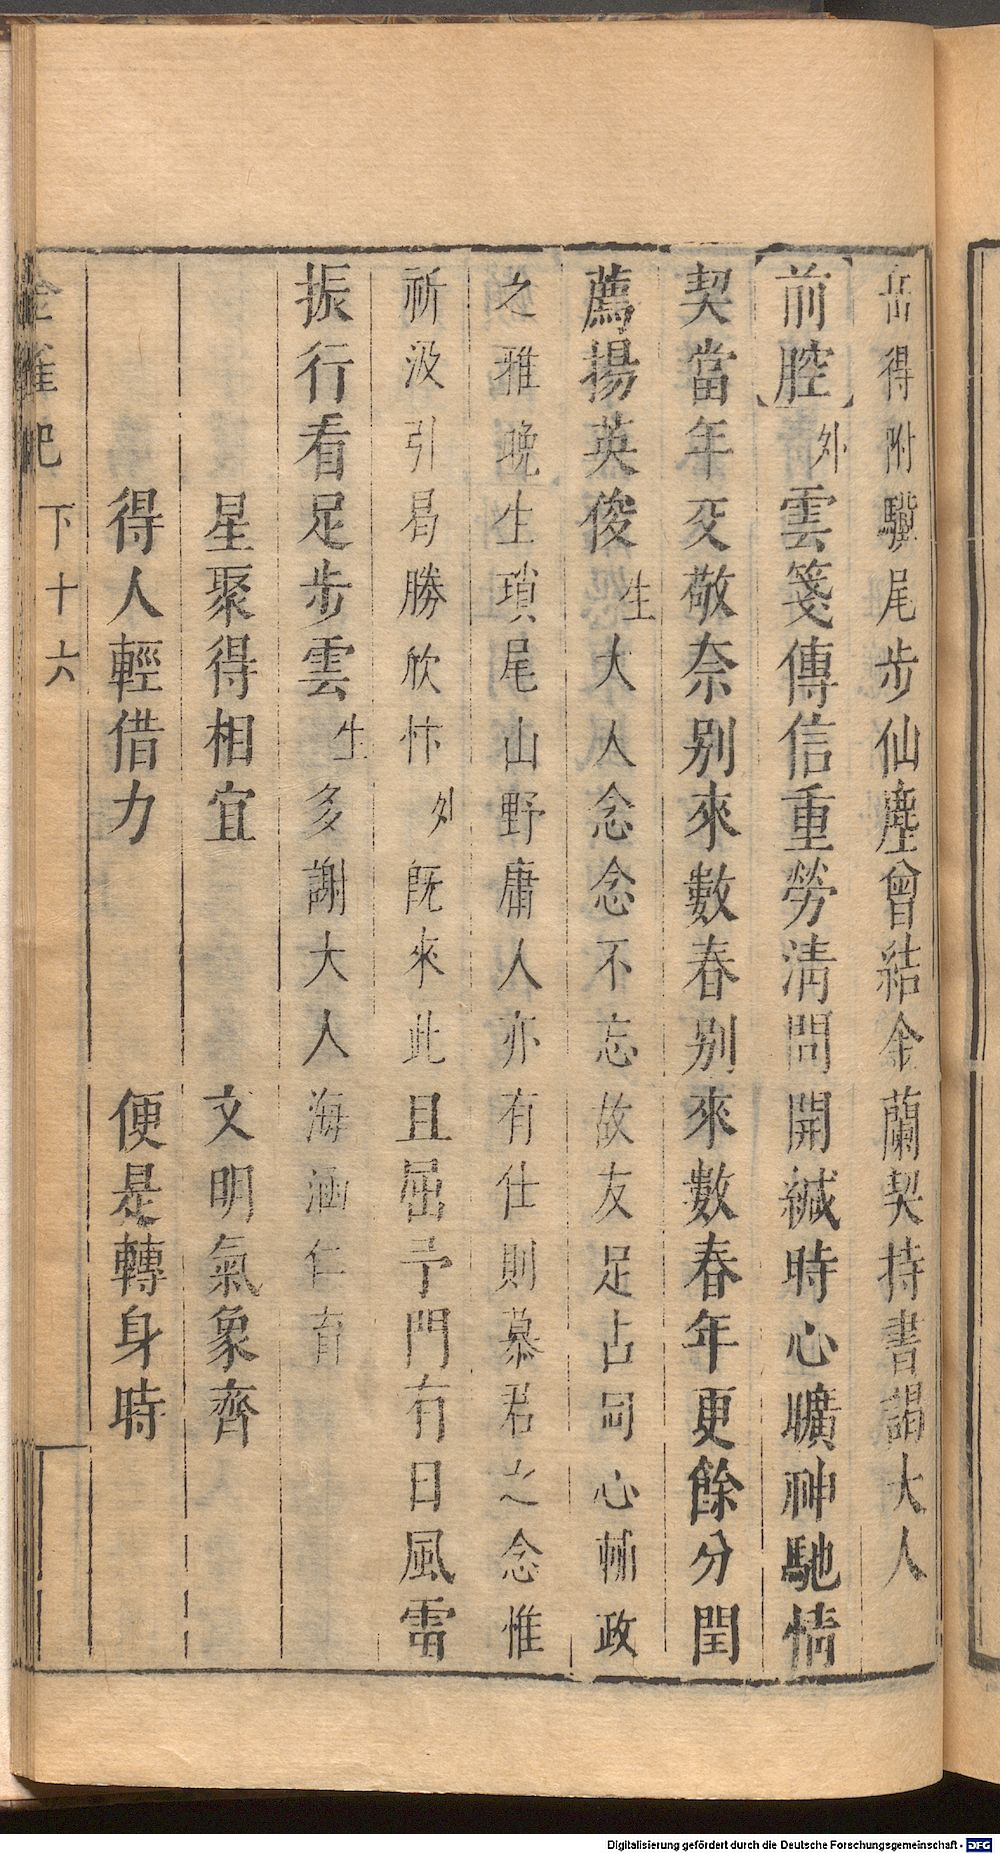 岳得附驥尾步仙塵曾結金蘭契持書謁大人
【前腔】外雲箋傳信重勞淸問開緘時心曠神馳情
契當年交敬奈別來數春別來數春年更餘分閏
薦揚英俊生大人念念不忘故友足占同心輔政
之雅晚生瑣尾山野庸人亦有仕則慕君之念惟
祈汲引曷勝欣忭外旣來此且屈予門有日風雷
振行看足步雲生多謝大人海涵仁育
星聚得相宜 文明氣象齊
得人輕借力 便是轉身時
金雀記 下十六
Digitalisierung gefördert durch die Deutsche Forschungsgemeinschaft - DFG